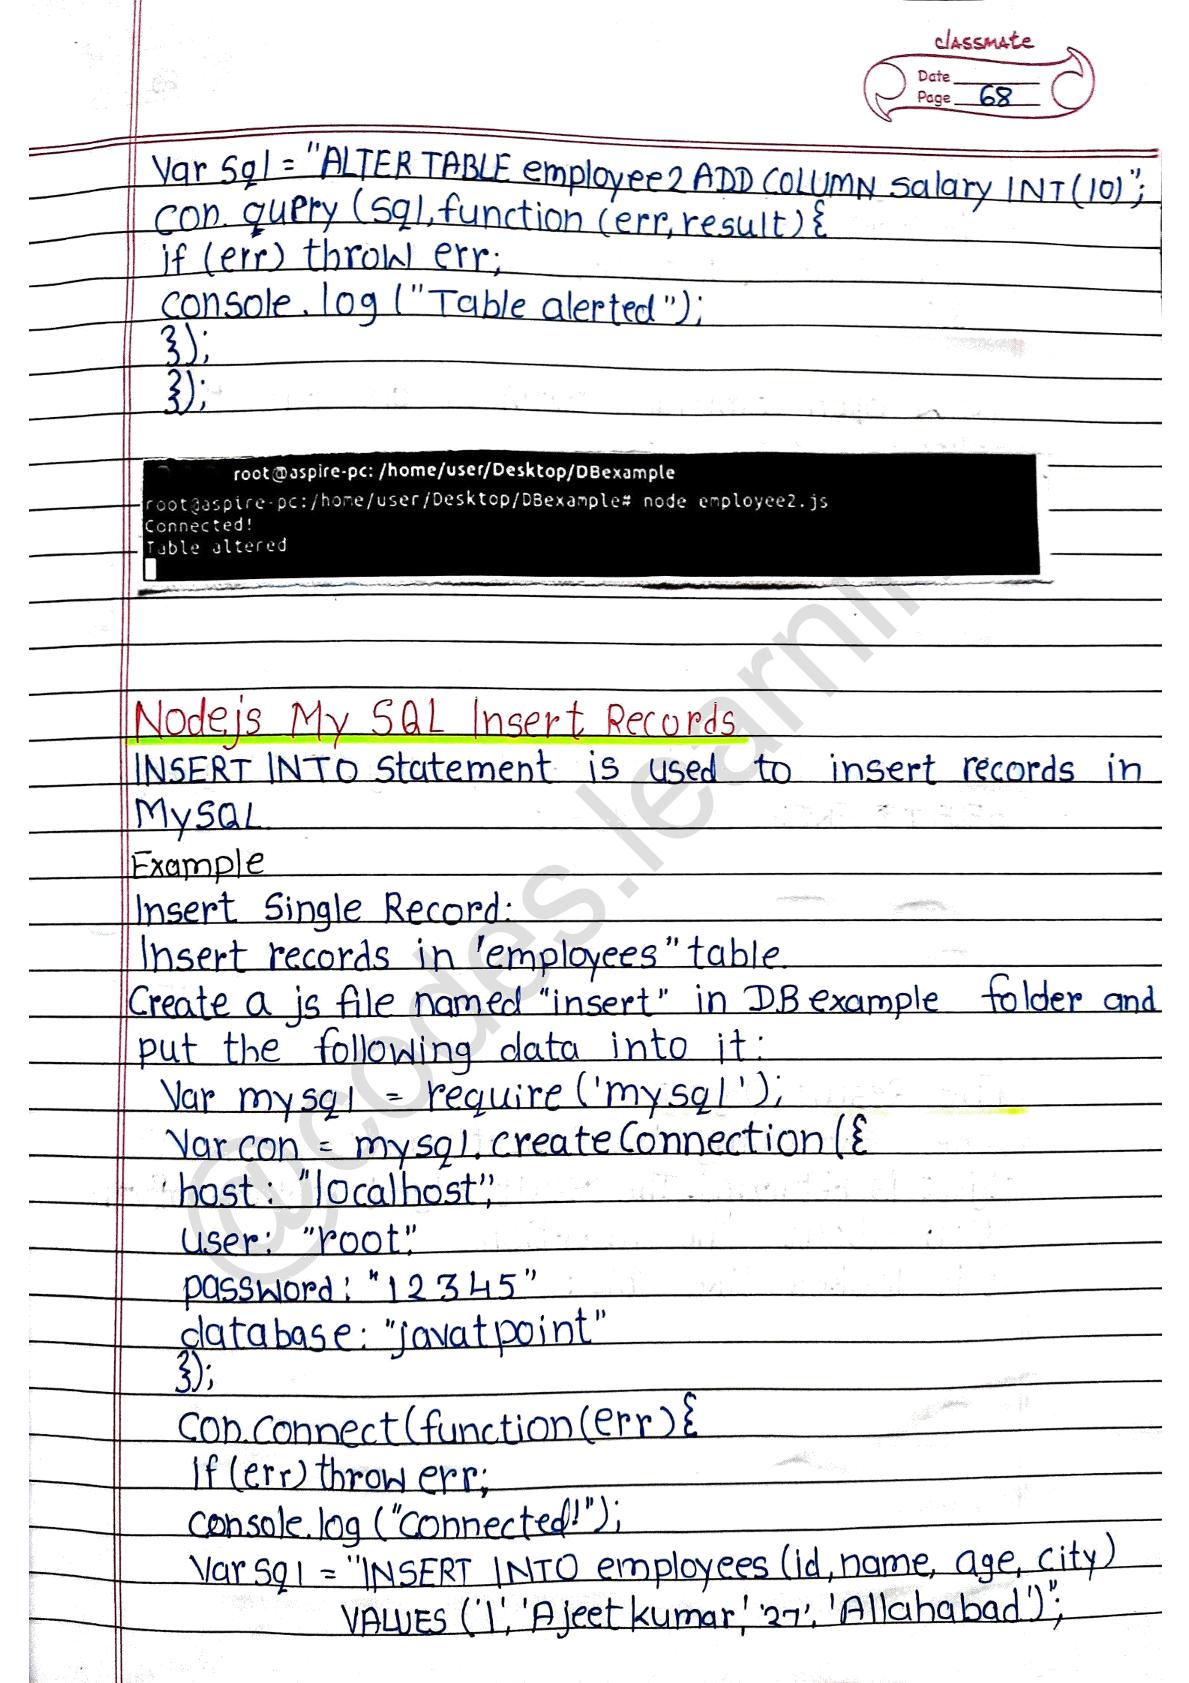 classmate
Date
Page 68
Var sql = "ALTER TABLE employee2 ADD COLUMN salary INT(10)";
con. query (sql, function (err, result) {
if (err) throw err;
console. log ("Table alerted");
});
});
root@aspire-pc: /home/user/Desktop/DBexample
root@aspire-pc:/home/user/Desktop/DBexample# node employee2.js
Connected!
Table altered
Nodejs My SQL Insert Records
INSERT INTO Statement is used to insert records in
MySQL
Example
Insert Single Record:
Insert records in 'employees" table.
Create a js file named "insert" in DB example folder and
put the following data into it:
Var mysql = require ('mysql');
Var con = mysql. createConnection ({
host: "localhost",
user: "root",
password: "12345"
database: "javatpoint"
});
con.connect (function (err) {
if (err) throw err;
console.log ("connected!");
Var sql = "INSERT INTO employees (id, name, age, city)
VALUES ('1', 'Ajeet kumar', '27', 'Allahabad')";
@codes.learni